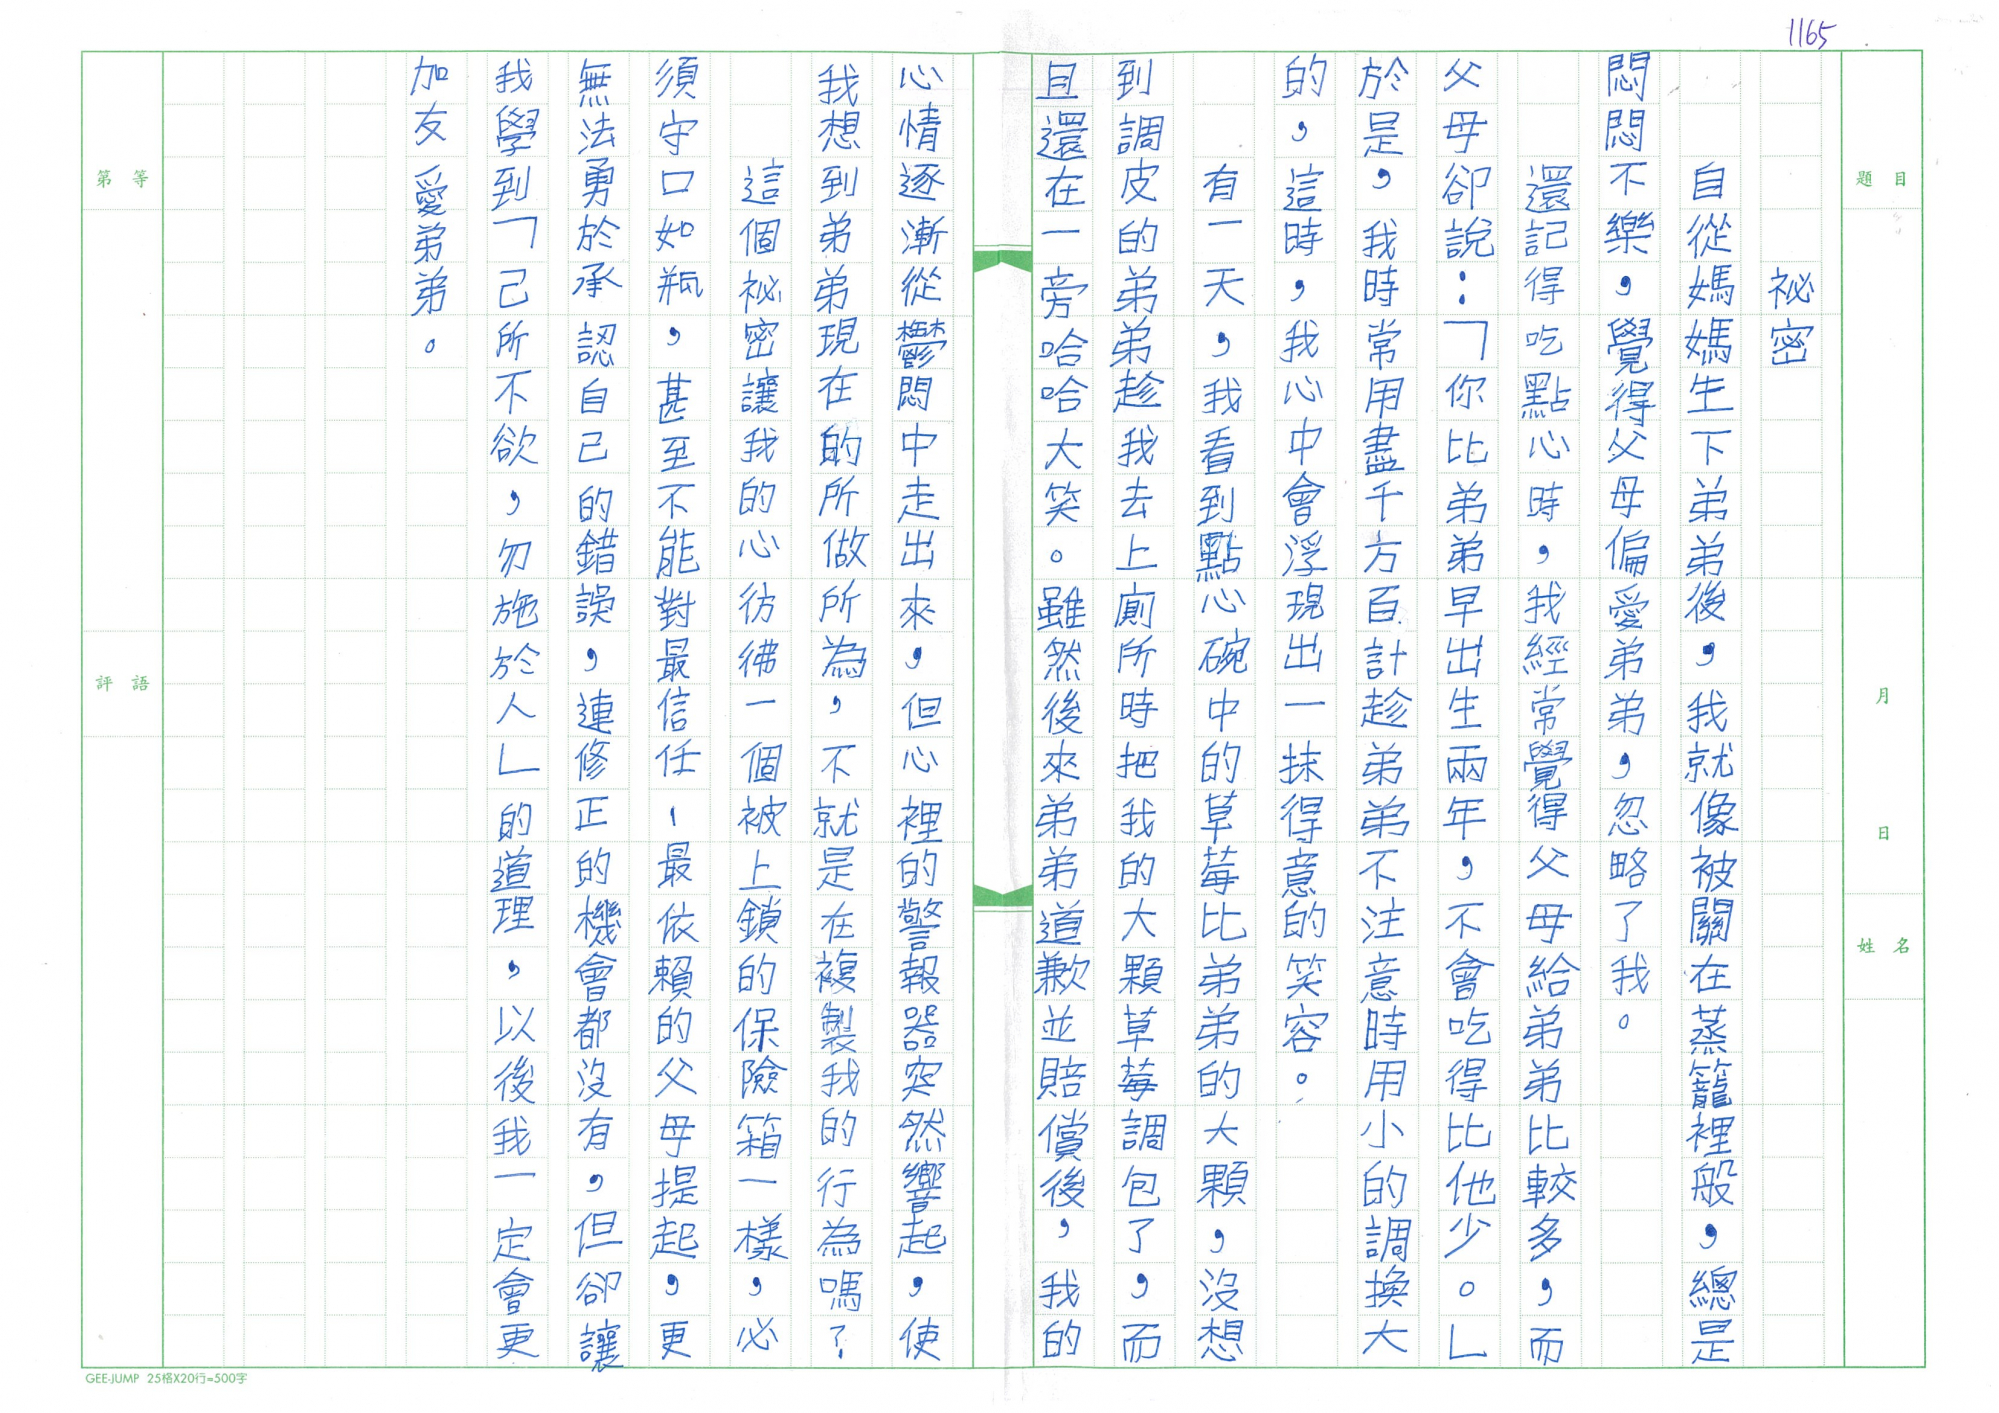 1165
題目
月
日
姓名
祕密
自從媽媽生下弟弟後，我就像被關在蒸籠裡般，總是
悶悶不樂，覺得父母偏愛弟弟，忽略了我。
還記得吃點心時，我經常覺得父母給弟弟比較多，而
父母卻說：「你比弟弟早出生兩年，不會吃得比他少。」
於是，我時常用盡千方百計趁弟弟不注意時用小的調換大
的，這時，我心中會浮現出一抹得意的笑容。
有一天，我看到點心碗中的草莓比弟弟的大顆，沒想
到調皮的弟弟趁我去上廁所時把我的大顆草莓調包了，而
且還在一旁哈哈大笑。雖然後來弟弟道歉並賠償後，我的
心情逐漸從鬱悶中走出來，但心裡的警報器突然響起，使
我想到弟弟現在的所做所為，不就是在複製我的行為嗎？
這個祕密讓我的心彷彿一個被上鎖的保險箱一樣，必
須守口如瓶，甚至不能對最信任、最依賴的父母提起，更
無法勇於承認自己的錯誤，連修正的機會都沒有，但卻讓
我學到「己所不欲，勿施於人」的道理，以後我一定會更
加友愛弟弟。
第等
評語
GEE-JUMP 25格X20行=500字